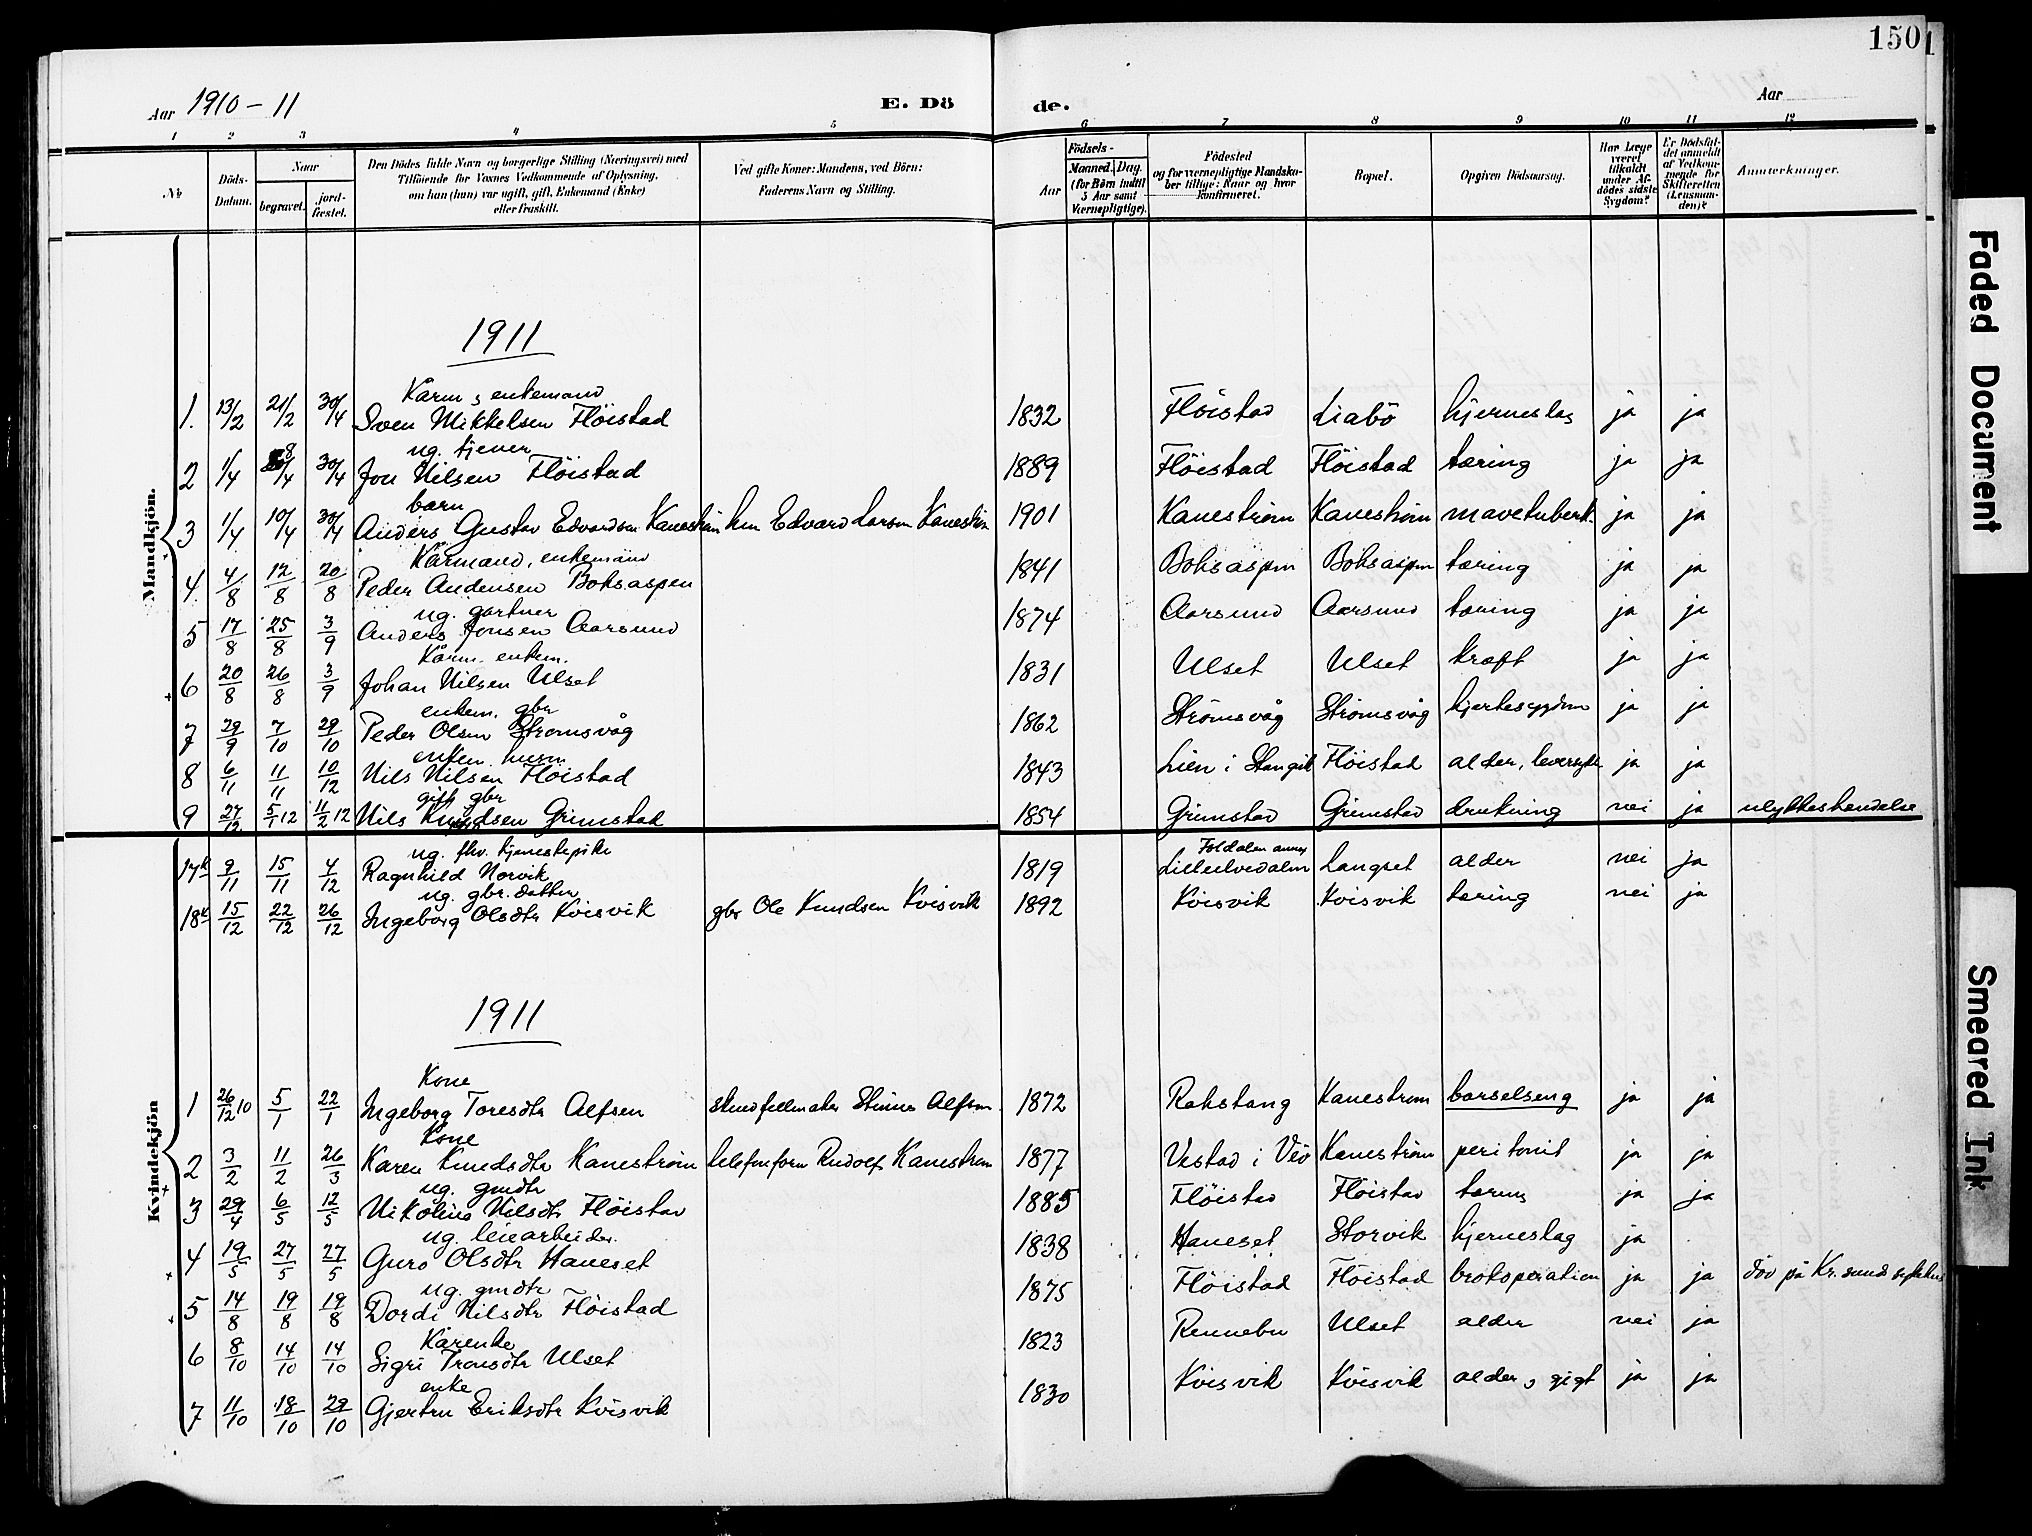 150
Aar 1910-11
E. Dö
de.
Aar
1 2 3 4 5 6 7 8 9 10 11 12
No
Döds-Datum.
Naar
begravet.
jord-fæstet.
Den Dödes fulde Navn og borgerlige Stilling (Næringsvei) med
Tilföiende for Voxnes Vedkommende af Oplysning,
om han (hun) var ugift, gift, Enkemand (Enke)
eller fraskilt.
Ved gifte Koner: Mandens, ved Börn:
Faderens Navn og Stilling.
Aar
Födsels-
Maaned. Dag.
(for Börn indtil
5 Aar samt
Værnepligtige).
Födested
og for værnepligtige Mandska-
ber tillige: Naar og hvor
konfirmeret.
Bopæl.
Opgiven Dödsaarsag.
Har Læge
været
tilkaldt
under Af-
dödes sidste
Sygdom?
Er Dödsfal-
det anmeldt
af Vedkom-
mende for
Skifteretten
(Lensman-
den)?
Anmærkninger.
Mandkjön.
1911
Kårm, enkemand
1. 13/2 21/2 30/4 Sven Mikkelsen Flöistad 1832 Flöistad Liabö hjerneslag ja ja
ug. tjener
2 1/4 8/4 30/4 Jon Nilsen Flöistad 1889 Flöistad Flöistad tæring ja ja
barn
3 1/4 10/4 30/4 Anders Gustav Edvardsen Kaneström hm Edvard Larsen Kaneström 1901 Kaneström Kaneström mavetuberk. ja ja
Kårmand, enkemand
4. 4/8 12/8 20/8 Peder Andersen Boksaspen 1841 Boksaspen Boksaspen tæring ja ja
ug. gartner
5 17/8 25/8 3/9 Anders Jonsen Aarsund 1874 Aarsund Aarsund tæring ja ja
Kårm. enkem.
6 20/8 26/8 3/9 Johan Nilsen Ulset 1831 Ulset Ulset kræft ja ja
enkem. gbr
7 29/9 7/10 29/10 Peder Olsen Strömsvåg 1862 Strömsvåg Strömsvåg hjertesygdom ja ja
enkem. husm
8 6/11 11/11 10/12 Nils Nilsen Flöistad 1843 Lien i Stangvik Flöistad alder, leversyk ja ja
gift gbr
9 27/12 5/1 12 11/2 12 Nils Knudsen Grimstad 1854 Grimstad Grimstad drukning nei ja ulykkeshendelse
ug. fhv. tjenestepike
17k 9/11 15/11 4/12 Ragnhild Norvik 1819 Foldalen annex Lilleelvedalen Langset alder nei ja
ug. gbr. datter
18k 15/12 22/12 26/12 Ingeborg Olsdtr Kvisvik gbr Ole Knudsen Kvisvik 1892 Kvisvik Kvisvik tæring nei ja
Kvindekjön
1911
Kone
1 26/12 10 5/1 22/1 Ingeborg Toresdtr Alfsen skindfellmaker Alfsen 1872 Rakstang Kaneström barselseng ja ja
Kone
2 3/2 11/2 26/3 Karen Knudsdtr Kaneström telefonform Rudolf Kaneström 1877 Vestad i Veö Kaneström peritonit ja ja
ug. gmdtr
3 29/4 6/5 12/5 Nikoline Nilsdtr Flöistad 1885 Flöistad Flöistad tæring ja ja
ug. leiearbeider.
4 19/5 27/5 27/5 Guro Olsdtr Haneset 1838 Haneset Storvik hjerneslag ja
ug. gmdtr
5 14/8 19/8 19/8 Dordi Nilsdtr Flöistad 1875 Flöistad Flöistad brokoperation ja ja död på Kr.sund sykehus
Kårenke
6 8/10 14/10 14/10 Sigri Tronsdtr Ulset 1823 Rennebu Ulset alder nei ja
enke
7 11/10 18/10 29/10 Gjertru Eriksdtr Kvisvik 1830 Kvisvik Kvisvik alder, gigt ja ja
Faded Document
Smeared Ink